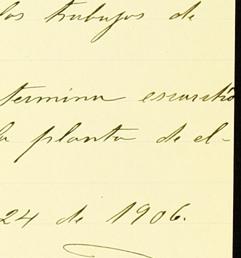 los trabajos de
termina
la planta de el-
24 de 1906.